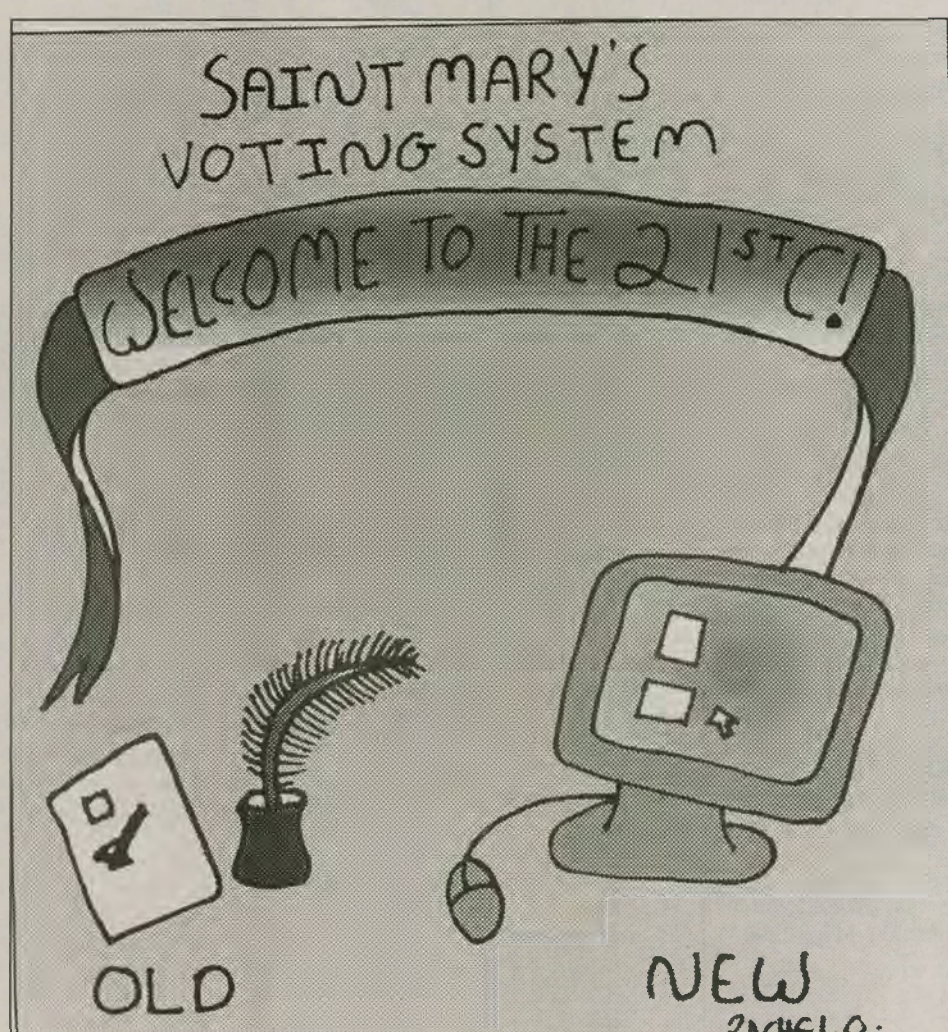 SAINT MARY'S
VOTING SYSTEM
WELCOME TO THE 21ST C!
OLD
NEW